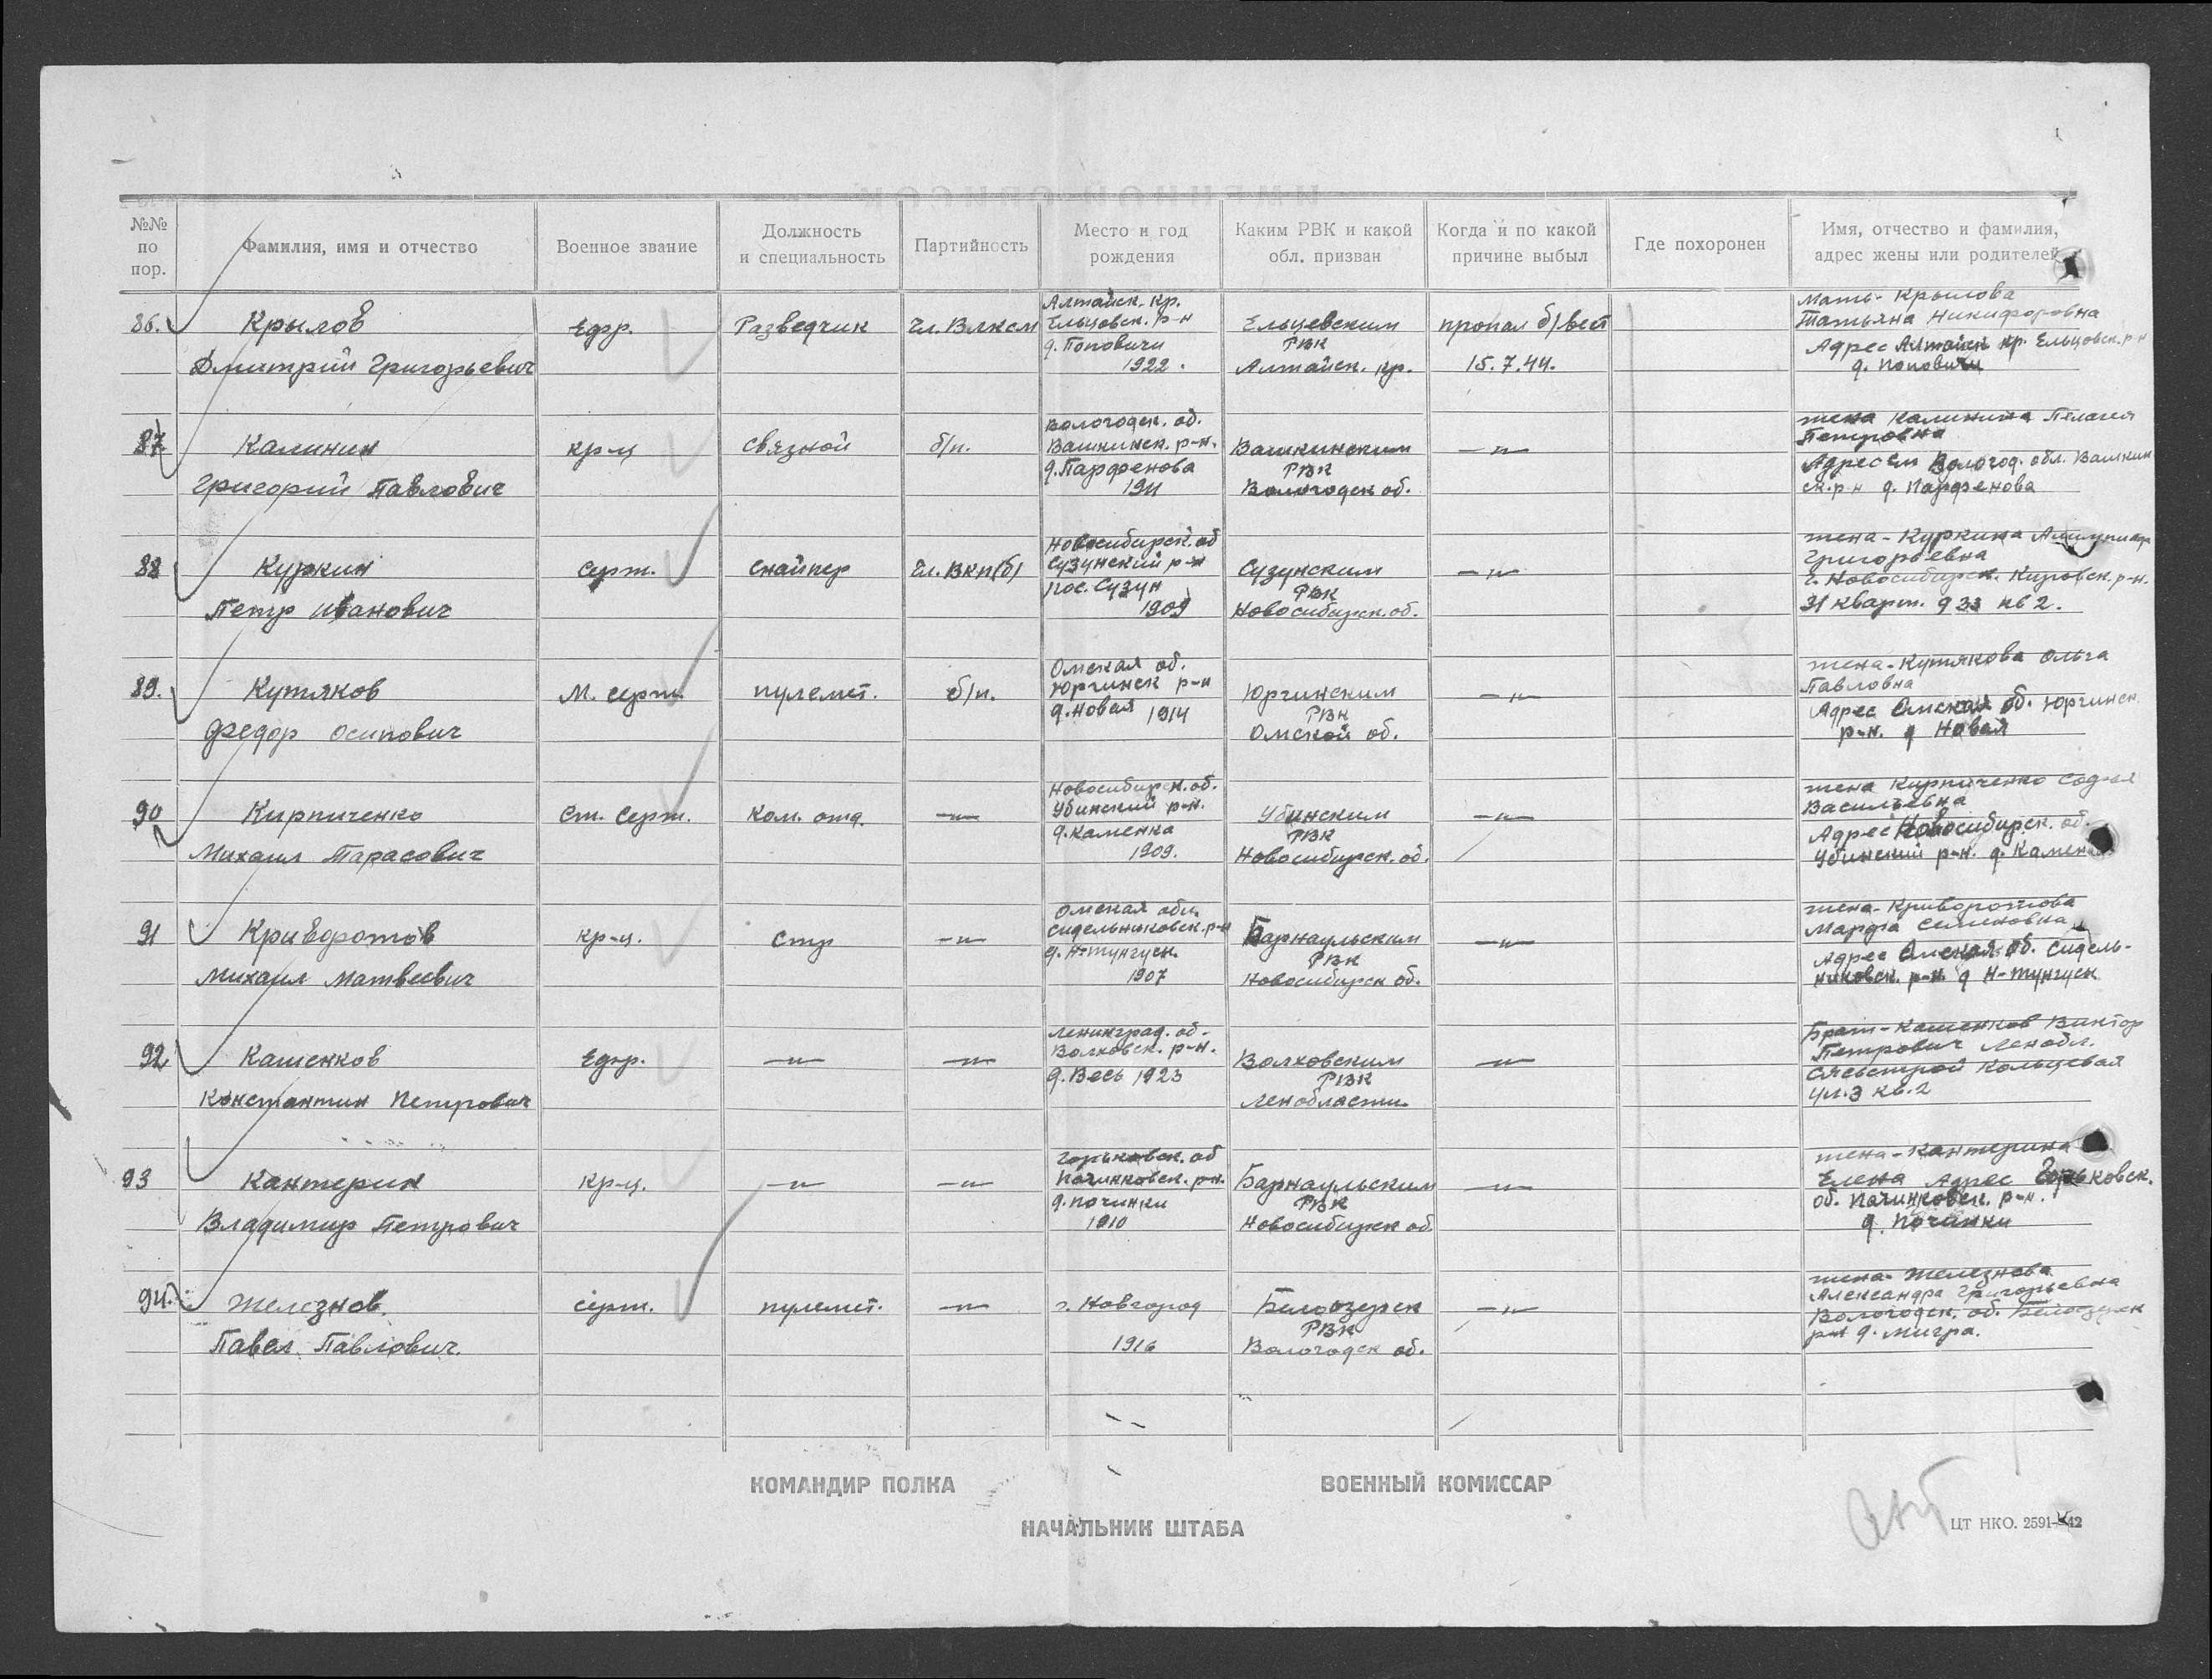 ИМЕННОЙ СПИСОК
№№ по пор.
Фамилия, имя и отчество
Военное звание
Должность и специальность
Партийность
Место и год рождения
Каким РВК и какой обл. призван
Когда и по какой причине выбыл
Где похоронен
Имя, отчество и фамилия, адрес жены или родителей
86. Крылов
Дмитрий Григорьевич
Ефр.
Разведчик
Чл. Влксм
Алтайск. кр.
Ельцовск. р-н
д. Поповичи
1922.
Ельцевским
РВК
Алтайск. кр.
пропал б/вест
15.7.44.
Мать - Крылова
Татьяна Никифоровна
Адрес Алтайск кр. Ельцовск. р-н
д. Поповичи
87. Калинин
Григорий Павлович
кр-ц
связной
б/п.
Вологодск. об.
Вашкинск. р-н.
д. Парфенова
1911
Вашкинским
РВК
Вологодск об.
—"—
жена Калинина Пелагея
Петровна
Адрес Вологод. обл. Вашкин
ск. р-н д. Парфенова
88 Куркин
Петр Иванович
Серж.
Снайпер
Чл. ВКП(б)
Новосибирск. об
Сузунский р-н
пос. Сузун
1909
Сузунским
РВК
Новосибирск. об.
—"—
жена - Куркина
Григорьевна
г. Новосибирск. Кировск. р-н.
31 кварт. д 33 кв 2.
89. Кутяков
Федор Осипович
М. серж.
пулемет.
б/п.
Омская об.
Юргинск р-н
д. Новая 1914
Юргинским
РВК
Омской об.
—"—
жена - Кутякова Ольга
Павловна
Адрес Омская об. Юргинск
р-н. д Новая
90 Кирпиченко
Михаил Тарасович
Ст. Серж.
Ком. отд.
—"—
Новосибирск. об.
Убинский р-н.
д. Каменка
1909.
Убинским
РВК
Новосибирск. об.
—"—
жена Кирпиченко Софья
Васильевна
Адрес Новосибирск. об.
Убинский р-н. д. Камен
91 Криворотов
Михаил Матвеевич
кр-ц.
Стр
—"—
Омская обл.
Сидельниковск. р-н
д. Н-тунгуск.
1907
Барнаульским
РВК
Новосибирск об.
—"—
жена - Криворотова
Марфа Семеновна
Адрес Омская об. Сидель-
никовск. р-н. д Н-тунгуск
92 Кашенков
Константин Петрович
Ефр.
—"—
—"—
Ленинград. об.
Волховск. р-н.
д. Весь 1923
Волховским
РВК
Ленобласти
—"—
Брат - Кашенков Виктор
Петрович Ленобл.
Сясьстрой Кольцевая
ул. 3 кв. 2
93 Кантерин
Владимир Петрович
кр-ц.
—"—
—"—
Горьковск. об
Починковск. р-н.
д. Починки
1910
Барнаульским
РВК
Новосибирск об.
—"—
жена - Кантерина
Елена Адрес Горьковск.
об. Починковск. р-н.
д. Починки
94. Железнов.
Павел Павлович.
серж.
пулемет.
—"—
г. Новгород
1916
Белоозерск
РВК
Вологодск об.
—"—
жена - Железнова
Александра Григорьевна
Вологодск. об. Белоозерск
р-н д. Мигра.
КОМАНДИР ПОЛКА
ВОЕННЫЙ КОМИССАР
НАЧАЛЬНИК ШТАБА
ЦТ НКО. 2591-42